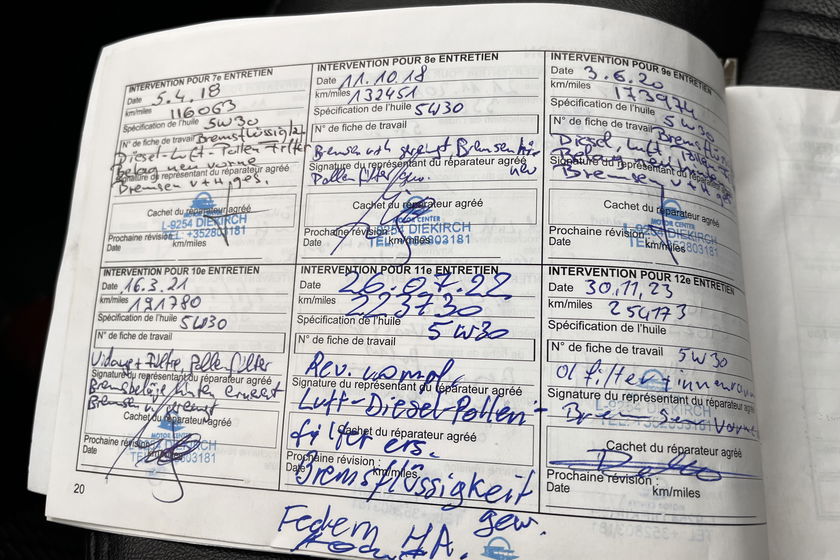 INTERVENTION POUR 7e ENTRETIEN
Date 5.4.18
km/miles 116063
Spécification de l'huile 5W30
N° de fiche de travail Bremsflüssigkeit
Diesel-Luft-Pollen-Filter
Belag neu vorne
Signature du représentant du réparateur agréé
Bremsen v+H, ges.
Cachet du réparateur agréé
L-9254 DIEKIRCH
TEL. +352803181
Prochaine révision :
Date km/miles
INTERVENTION POUR 8e ENTRETIEN
Date 11.10.18
km/miles 132451
Spécification de l'huile 5W30
N° de fiche de travail
Bremsen gereinigt, Bremsen
neu
Signature du représentant du réparateur agréé
Pollenfilter
Cachet du réparateur agréé
MOTOR CENTER
L-9254 DIEKIRCH
TEL. +352803181
Prochaine révision :
Date km/miles
INTERVENTION POUR 9e ENTRETIEN
Date 3.6.20
km/miles 173974
Spécification de l'huile 5W30
N° de fiche de travail Bremsflüs
Diesel, Luft, Pollen
Belag
Signature du représentant du réparateur
Bremsen v+H ges
Cachet du réparateur agréé
MOTOR CENTER
L-9254 DIEKIRCH
TEL. +352803181
Prochaine révision :
Date km/miles
INTERVENTION POUR 10e ENTRETIEN
Date 16.3.21
km/miles 191780
Spécification de l'huile 5W30
N° de fiche de travail
Vidange + Filtre, Pollenfilter
Signature du représentant du réparateur agréé
Bremsbeläge hinten erneuert
Bremse v. gereinigt
Cachet du réparateur agréé
MOTOR CENTER
L-9254 DIEKIRCH
TEL. +352803181
Prochaine révision :
Date km/miles
INTERVENTION POUR 11e ENTRETIEN
Date 26.07.22
km/miles 223730
Spécification de l'huile 5W30
N° de fiche de travail
Rev. kompl.
Signature du représentant du réparateur agréé
Luft-Diesel-Pollen-
filter ers.
Cachet du réparateur agréé
Prochaine révision :
Date km/miles
Bremsflüssigkeit
gew.
Federn HA.
INTERVENTION POUR 12e ENTRETIEN
Date 30.11.23
km/miles 254173
Spécification de l'huile
N° de fiche de travail 5W30
Ölfilter + innenraum
Signature du représentant du réparateur agréé
Bremse vorne
Cachet du réparateur agréé
Prochaine révision :
Date km/miles
20